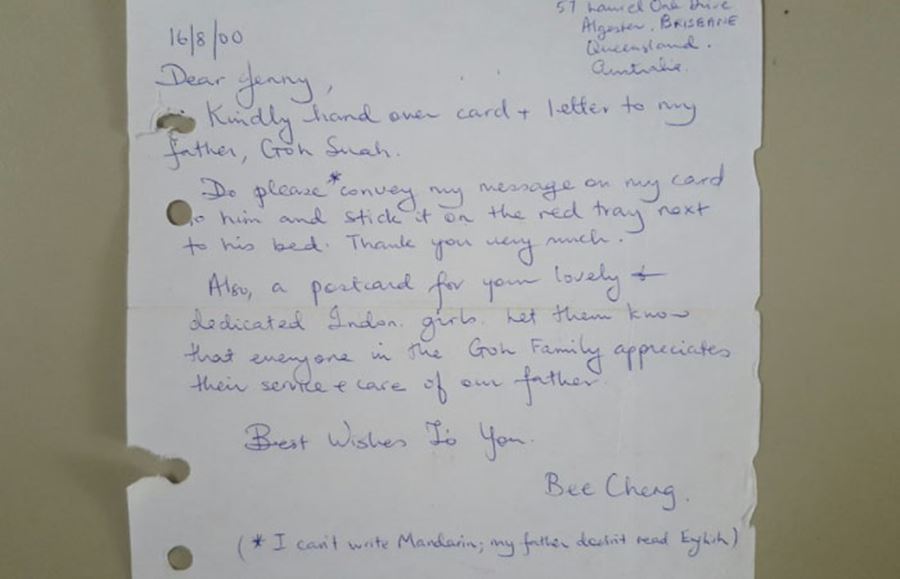 57 Laurel Oak Drive
Algester, BRISBANE
Queensland.
Australia.
16/8/00
Dear Jenny,
Kindly hand over card + letter to my
father, Goh Suah.
Do please *convey my message on my card
to him and stick it on the red tray next
to his bed. Thank you very much.
Also, a postcard for your lovely +
dedicated Indon. girls. Let them know
that everyone in the Goh Family appreciates
their service + care of our father.
Best Wishes To You.
Bee Cheng.
(* I can't write Mandarin; my father doesn't read English)